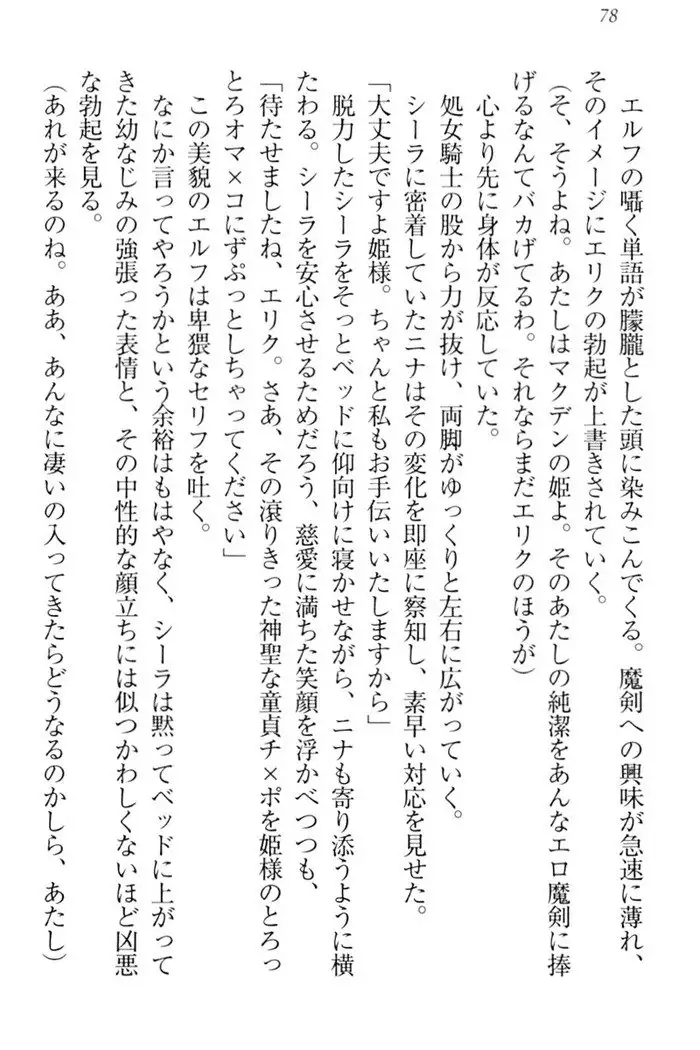 78
エルフの囁く単語が朦朧とした頭に染みこんでくる。魔剣への興味が急速に薄れ、
そのイメージにエリクの勃起が上書きされていく。
（そ、そうよね。あたしはマクデンの姫よ。そのあたしの純潔をあんなエロ魔剣に捧
げるなんてバカげてるわ。それならまだエリクのほうが）
心より先に身体が反応していた。
処女騎士の股から力が抜け、両脚がゆっくりと左右に広がっていく。
シーラに密着していたニナはその変化を即座に察知し、素早い対応を見せた。
「大丈夫ですよ姫様。ちゃんと私もお手伝いいたしますから」
脱力したシーラをそっとベッドに仰向けに寝かせながら、ニナも寄り添うように横
たわる。シーラを安心させるためだろう、慈愛に満ちた笑顔を浮かべつつも、
「待たせましたね、エリク。さあ、その滾りきった神聖な童貞チ×ポを姫様のとろっ
とろオマ×コにずぷっとしちゃってください」
この美貌のエルフは卑猥なセリフを吐く。
なにか言ってやろうかという余裕はもはやなく、シーラは黙ってベッドに上がって
きた幼なじみの強張った表情と、その中性的な顔立ちには似つかわしくないほど凶悪
な勃起を見る。
（あれが来るのね。ああ、あんなに凄いの入ってきたらどうなるのかしら、あたし）